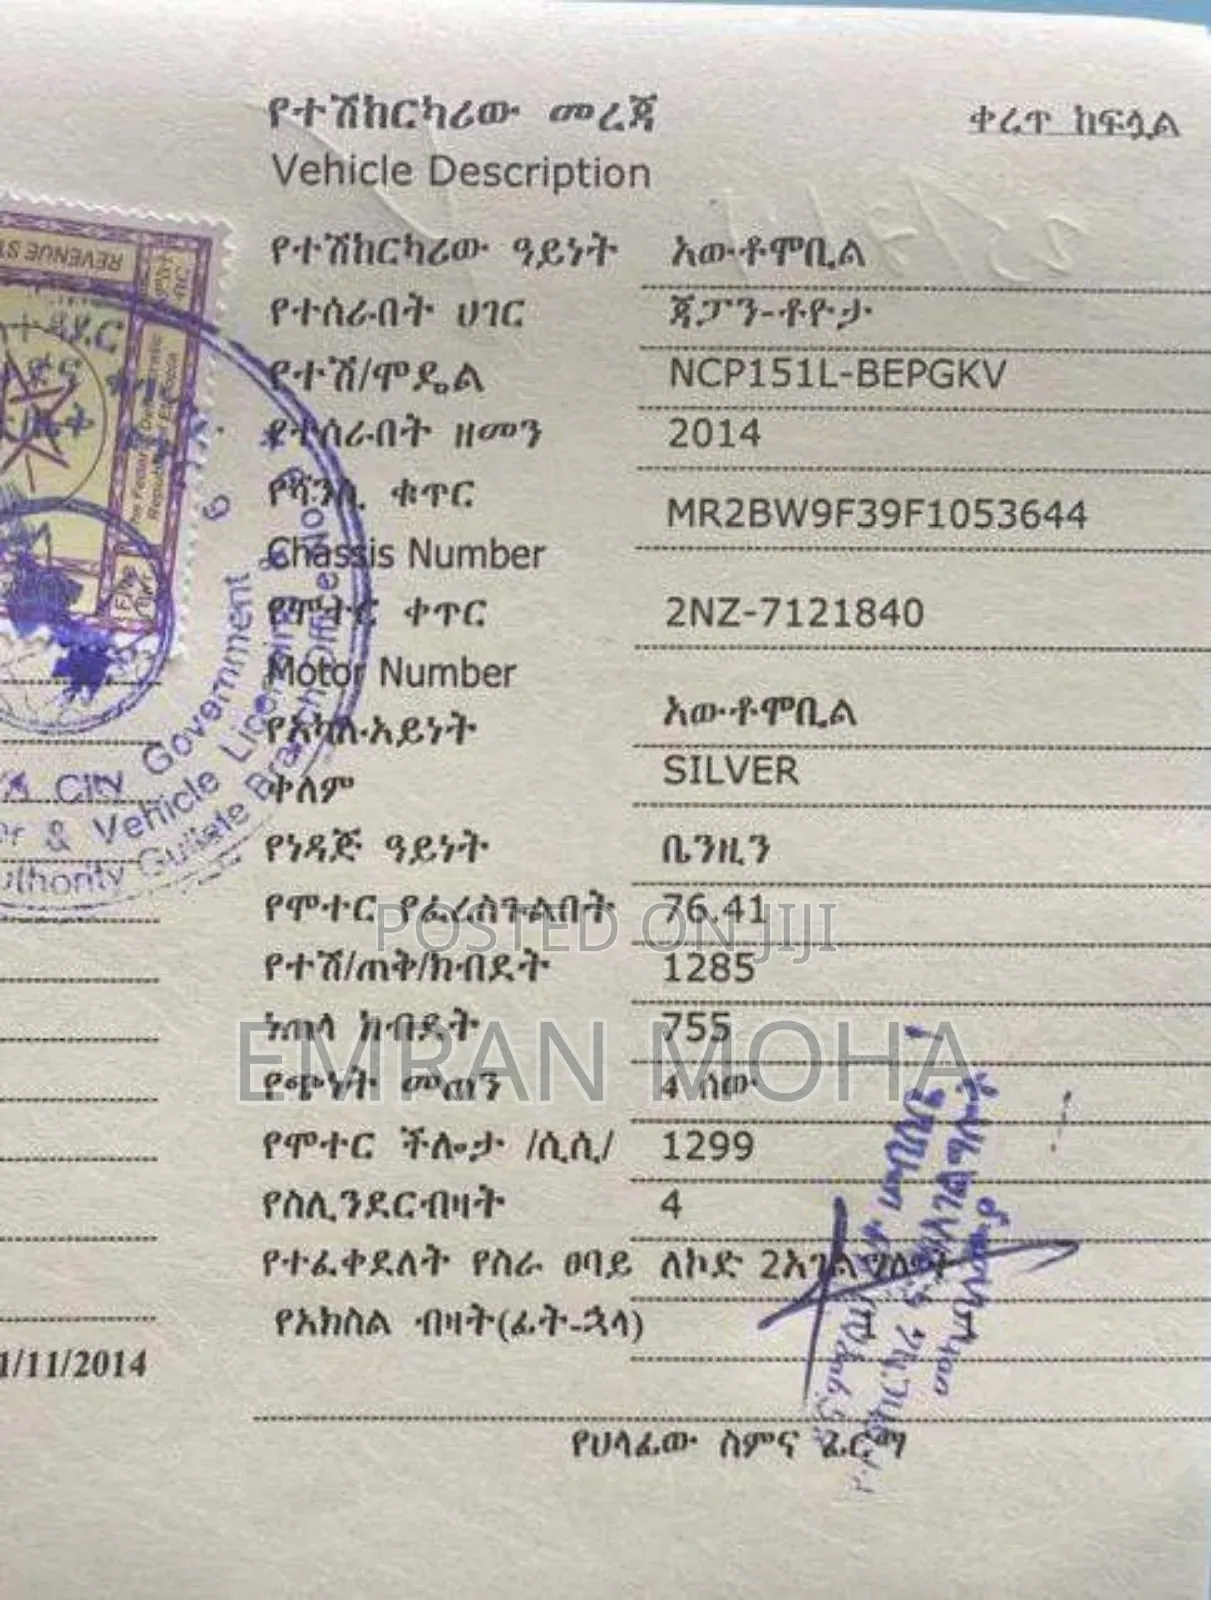 የተሽከርካሪው መረጃ
ቀረጥ ከፍሏል
Vehicle Description
የተሽከርካሪው ዓይነት አውቶሞቢል
የተሰራበት ሀገር ጃፓን-ቶዮታ
የተሽ/ሞዴል NCP151L-BEPGKV
የተሰራበት ዘመን 2014
የሻንሲ ቁጥር MR2BW9F39F1053644
Chassis Number
የሞተር ቀጥር 2NZ-7121840
Motor Number
የአካል-አይነት አውቶሞቢል
ቀለም SILVER
የነዳጅ ዓይነት ቤንዚን
የሞተር የፈረስጉልበት 76.41
የተሽ/ጠቅ/ክብደት 1285
ነጠላ ክብደት 755
የጭነት መጠን 4 ሰው
የሞተር ችሎታ /ሲሲ/ 1299
የስሊንደርብዛት 4
የተፈቀደለት የስራ ፀባይ ለኮድ 2አገልግሎት
የአክስል ብዛት(ፊት-ኋላ)
1/11/2014
የሀላፊው ስምና ፊርማ
REVENUE
City Government
& Vehicle Licensing
Authority Gullate Branch Office No
6
POSTED ON JIJI
EMRAN MOHA